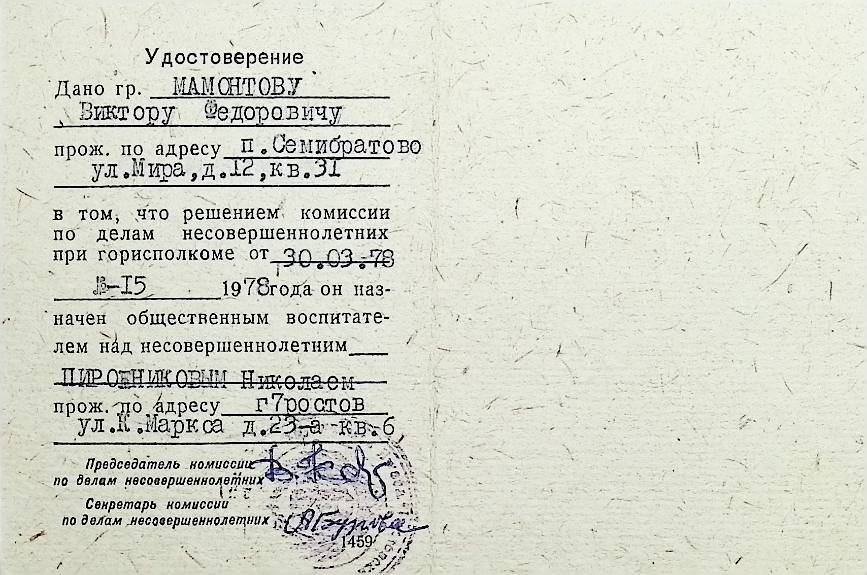 Удостоверение
Дано гр. МАМОНТОВУ
Виктору Федоровичу
прож. по адресу п.Семибратово
ул.Мира,д.12,кв.31
в том, что решением комиссии
по делам несовершеннолетних
при горисполкоме от 30.03.78
№-15 1978года он наз-
начен общественным воспитате-
лем над несовершеннолетним
Николаем
прож. по адресу г7ростов
ул.К.Маркса д.23-а кв.6
Председатель комиссии
по делам несовершеннолетних
Секретарь комиссии
по делам несовершеннолетних